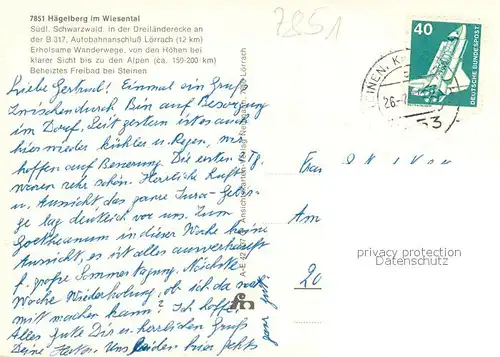 7851 Hägelberg im Wiesental
Südl. Schwarzwald, in der Dreiländerecke an
der B 317, Autobahnanschluß Lörrach (12 km)
Erholsame Wanderwege, von den Höhen bei
klarer Sicht bis zu den Alpen (ca. 150-200 km)
Beheiztes Freibad bei Steinen
7851
40
DEUTSCHE BUNDESPOST
Liebe Gertrud! Einmal ein Gruß
zwischendurch. Bin auf Besorgung
im Dorf. Seit gestern ist es auch
hier wieder kühler u. Regen, wir
hoffen auf Besserung. Die ersten Tg.
waren sehr schön. Herrliche Luft
u. Aussicht das ganze Jura-Gebir-
ge lag deutlich vor uns. Zum
Goetheanum in dieser Woche keine
Aussicht, es ist alles ausverkauft
f. große Sommertagung. Nächste
Woche Wiederholung, ob ich da noch
mitmachen kann? Ich hoffe.
Alles Gute Dir u. herzlichen Gruß
Deine Uns beiden hier gehts
ganz gut!
Frau
Am
20
privacy protection
Datenschutz